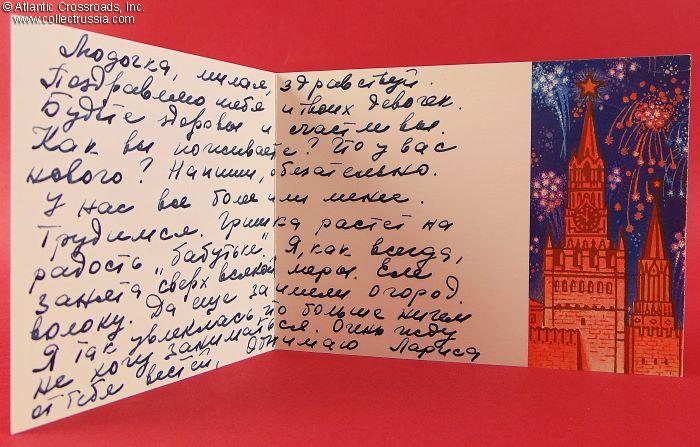 © Atlantic Crossroads, Inc.
www.collectrussia.com
Людочка, милая, здравствуй.
Поздравляю тебя и твоих девочек.
Будьте здоровы и счастливы.
Как вы поживаете? Что у вас
нового? Напиши, обязательно.
У нас все более или менее.
Трудимся. Гришка растет на
радость „бабутьке“. Я, как всегда,
занята сверх всякой меры. Еле
волоку. Да еще заимели огород.
Я так увлеклась, что больше ничем
не хочу заниматься. Очень жду
от тебя вестей, Обнимаю Лариса